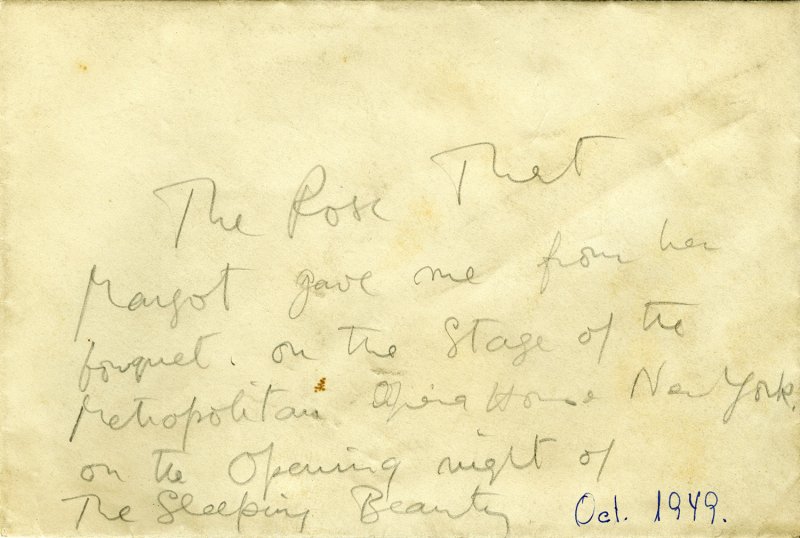 The Rose That
Margot gave me from her
bouquet. on the Stage of the
Metropolitan Opera House New York.
on the Opening night of
The Sleeping Beauty
Oct. 1949.